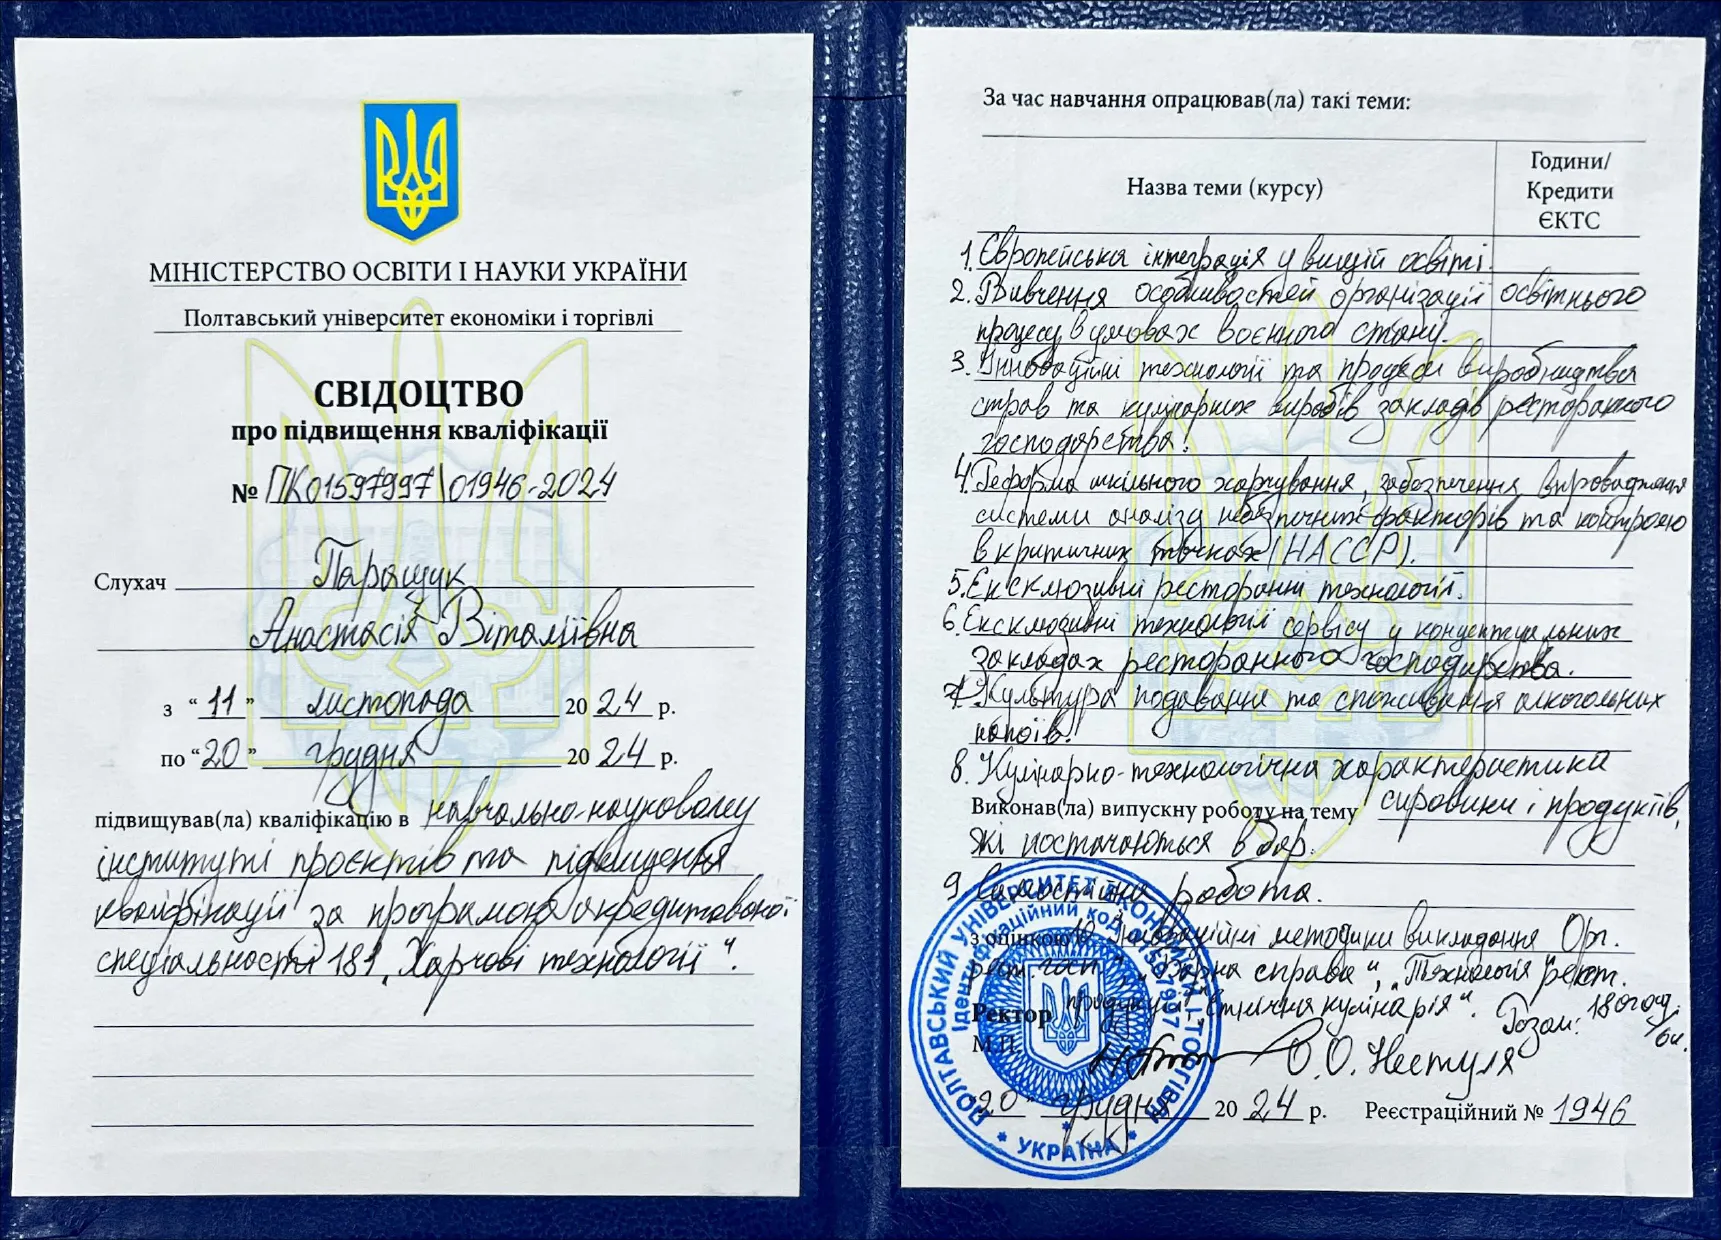 МІНІСТЕРСТВО ОСВІТИ І НАУКИ УКРАЇНИ
Полтавський університет економіки і торгівлі
СВІДОЦТВО
про підвищення кваліфікації
№ ПК01597997\01946-2024
Слухач Паращук
Анастасія Віталіївна
з "11" листопада 2024 р.
по "20" грудня 2024 р.
підвищував(ла) кваліфікацію в навчально-науковому
інституті проєктів та підвищення
кваліфікації за програмою акредитованої
спеціальності 181 „Харчові технології".
За час навчання опрацював(ла) такі теми:
Назва теми (курсу)
Години/
Кредити
ЄКТС
1. Європейська інтеграція у вищій освіті.
2. Вивчення особливостей організації освітнього
процесу в умовах воєнного стану.
3. Інноваційні технології та процеси виробництва
страв та кулінарних виробів закладів ресторанного
господарства.
4. Реформа шкільного харчування, забезпечення впровадження
системи аналізу небезпечних факторів та контролю
в критичних точках (НАССР).
5. Ексклюзивні ресторанні технології.
6. Ексклюзивні технології сервісу у концептуальних
закладах ресторанного господарства.
7. Культура подавання та споживання алкогольних
напоїв.
8. Кулінарно-технологічна характеристика
Виконав(ла) випускну роботу на тему сировини і продуктів,
які постачаються в бар.
9. Самостійна робота.
з оцінкою 10. Інноваційні методики викладання Орг.
рест. госп", „Барна справа", „Технологія рест.
продукції", „Етнічна кулінарія". Разом: 180 год.
/6к.
Ректор
М.П.
О.О. Нестуля
"20" грудня 2024 р. Реєстраційний № 1946
ПОЛТАВСЬКИЙ УНІВЕРСИТЕТ ЕКОНОМІКИ І ТОРГІВЛІ
Ідентифікаційний код 01597997
* УКРАЇНА *